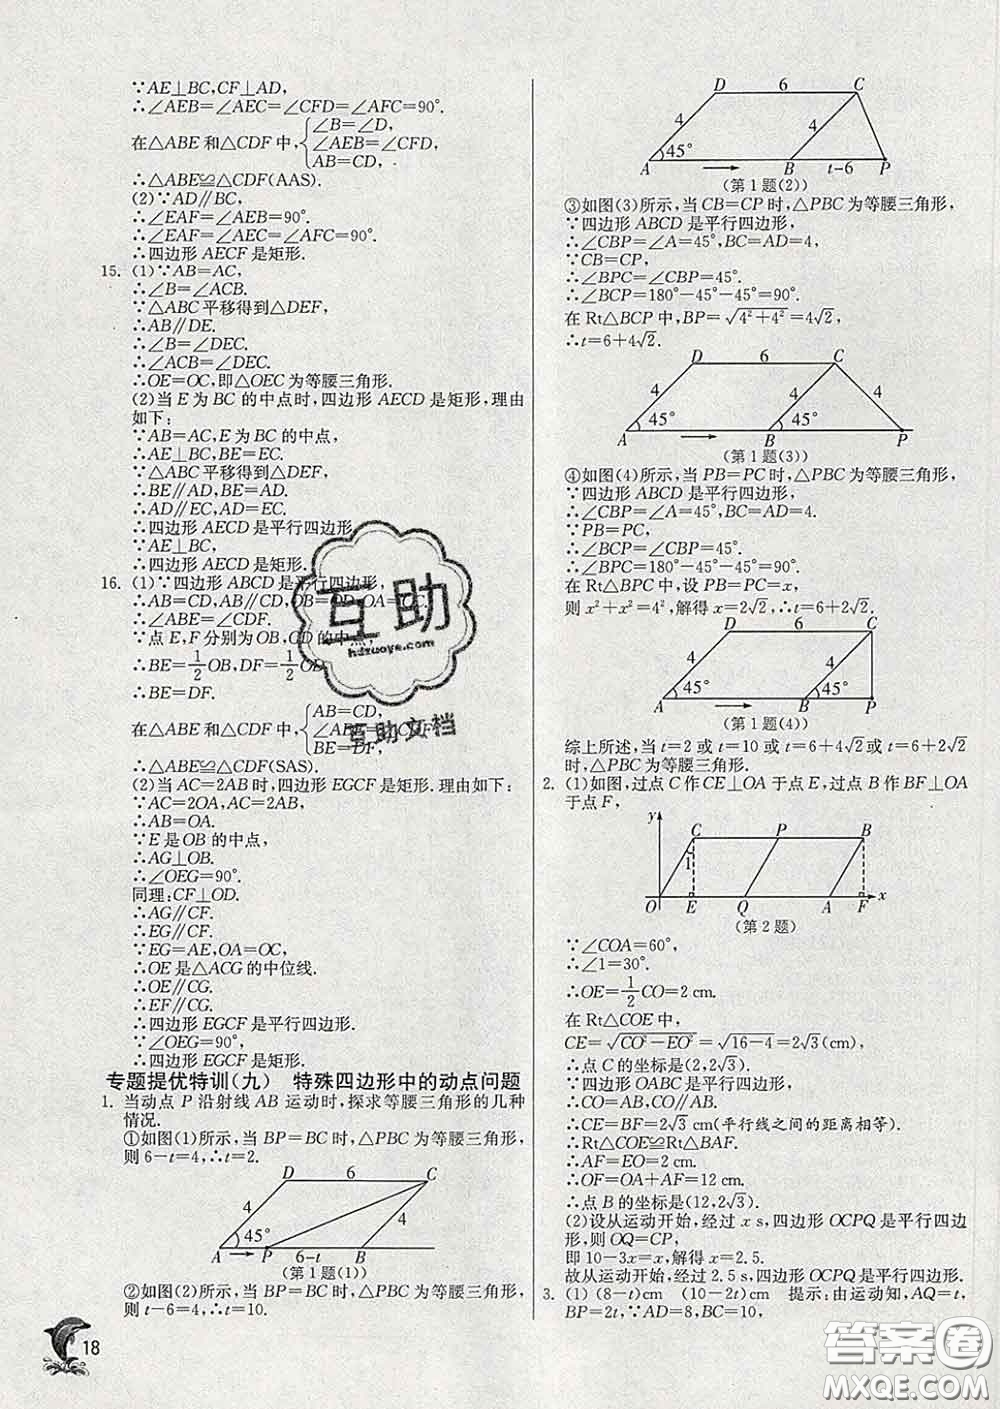 ∵AE⊥BC,CF⊥AD,
∴∠AEB=∠AEC=∠CFD=∠AFC=90°.
在△ABE和△CDF中,{∠B=∠D,
∠AEB=∠CFD,
AB=CD,
∴△ABE≌△CDF(AAS).
(2)∵AD∥BC,
∴∠EAF=∠AEB=90°.
∴∠EAF=∠AEC=∠AFC=90°.
∴四边形AECF是矩形.
15. (1)∵AB=AC,
∴∠B=∠ACB.
∵△ABC平移得到△DEF,
∴AB∥DE.
∴∠B=∠DEC.
∴∠ACB=∠DEC.
∴OE=OC,即△OEC为等腰三角形.
(2)当E为BC的中点时,四边形AECD是矩形,理由
如下:
∵AB=AC,E为BC的中点,
∴AE⊥BC,BE=EC.
∵△ABC平移得到△DEF,
∴BE∥AD,BE=AD.
∴AD∥EC,AD=EC.
∴四边形AECD是平行四边形.
∵AE⊥BC,
∴四边形AECD是矩形.
16. (1)∵四边形ABCD是平行四边形,
∴AB=CD,AB∥CD,OB=OD,OA=OC.
∴∠ABE=∠CDF.
∵点E,F分别为OB,OD的中点,
∴BE=1/2OB,DF=1/2OD.
∴BE=DF.
在△ABE和△CDF中,{AB=CD,
∠ABE=∠CDF,
BE=DF,
∴△ABE≌△CDF(SAS).
(2)当AC=2AB时,四边形EGCF是矩形.理由如下:
∵AC=2OA,AC=2AB,
∴AB=OA.
∵E是OB的中点,
∴AG⊥OB.
∴∠OEG=90°.
同理:CF⊥OD.
∴AG∥CF.
∴EG∥CF.
∵EG=AE,OA=OC,
∴OE是△ACG的中位线.
∴OE∥CG.
∴EF∥CG.
∴四边形EGCF是平行四边形.
∵∠OEG=90°,
∴四边形EGCF是矩形.
专题提优特训(九) 特殊四边形中的动点问题
1. 当动点P沿射线AB运动时,探求等腰三角形的几种
情况.
①如图(1)所示,当BP=BC时,△PBC为等腰三角形,
则6-t=4,∴t=2.
D 6 C
4 4
45°
A P 6-t B
(第1题(1))
②如图(2)所示,当BP=BC时,△PBC为等腰三角形,
则t-6=4,∴t=10.
D 6 C
4 4
45°
A B t-6 P
(第1题(2))
③如图(3)所示,当CB=CP时,△PBC为等腰三角形,
∵四边形ABCD是平行四边形,
∴∠CBP=∠A=45°,BC=AD=4,
∵CB=CP,
∴∠BPC=∠CBP=45°.
∴∠BCP=180°-45°-45°=90°.
在Rt△BCP中,BP=√4²+4²=4√2,
∴t=6+4√2.
D 6 C
4 4 4
45° 45°
A B P
(第1题(3))
④如图(4)所示,当PB=PC时,△PBC为等腰三角形,
∵四边形ABCD是平行四边形,
∴∠CBP=∠A=45°,BC=AD=4.
∵PB=PC,
∴∠BCP=∠CBP=45°.
∴∠BPC=180°-45°-45°=90°.
在Rt△BPC中,设PB=PC=x,
则x²+x²=4²,解得x=2√2,∴t=6+2√2.
D 6 C
4 4
45° 45°
A B P
(第1题(4))
综上所述,当t=2或t=10或t=6+4√2或t=6+2√2
时,△PBC为等腰三角形.
2. (1)如图,过点C作CE⊥OA于点E,过点B作BF⊥OA
于点F,
y C P B
1
O E Q A F x
(第2题)
∵∠COA=60°,
∴∠1=30°.
∴OE=1/2CO=2 cm.
在Rt△COE中,
CE=√CO²-EO²=√16-4=2√3(cm),
∴点C的坐标是(2,2√3).
∵四边形OABC是平行四边形,
∴CO=AB,CO∥AB.
∴CE=BF=2√3 cm(平行线之间的距离相等).
∴Rt△COE≌Rt△BAF.
∴AF=EO=2 cm.
∴OF=OA+AF=12 cm.
∴点B的坐标是(12,2√3).
(2)设从运动开始,经过x s,四边形OCPQ是平行四边
形,则OQ=CP,
即10-3x=x,解得x=2.5.
故从运动开始,经过2.5 s,四边形OCPQ是平行四边形.
3. (1) (8-t)cm (10-2t)cm 提示:由运动知,AQ=t,
BP=2t,∵AD=8,BC=10,
18
互助
hdzuoye.com
互助文档
答案圈
MXQE.COM